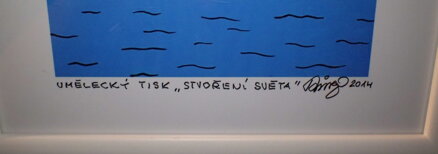 UMĚLECKÝ TISK „STVOŘENÍ SVĚTA" 2014